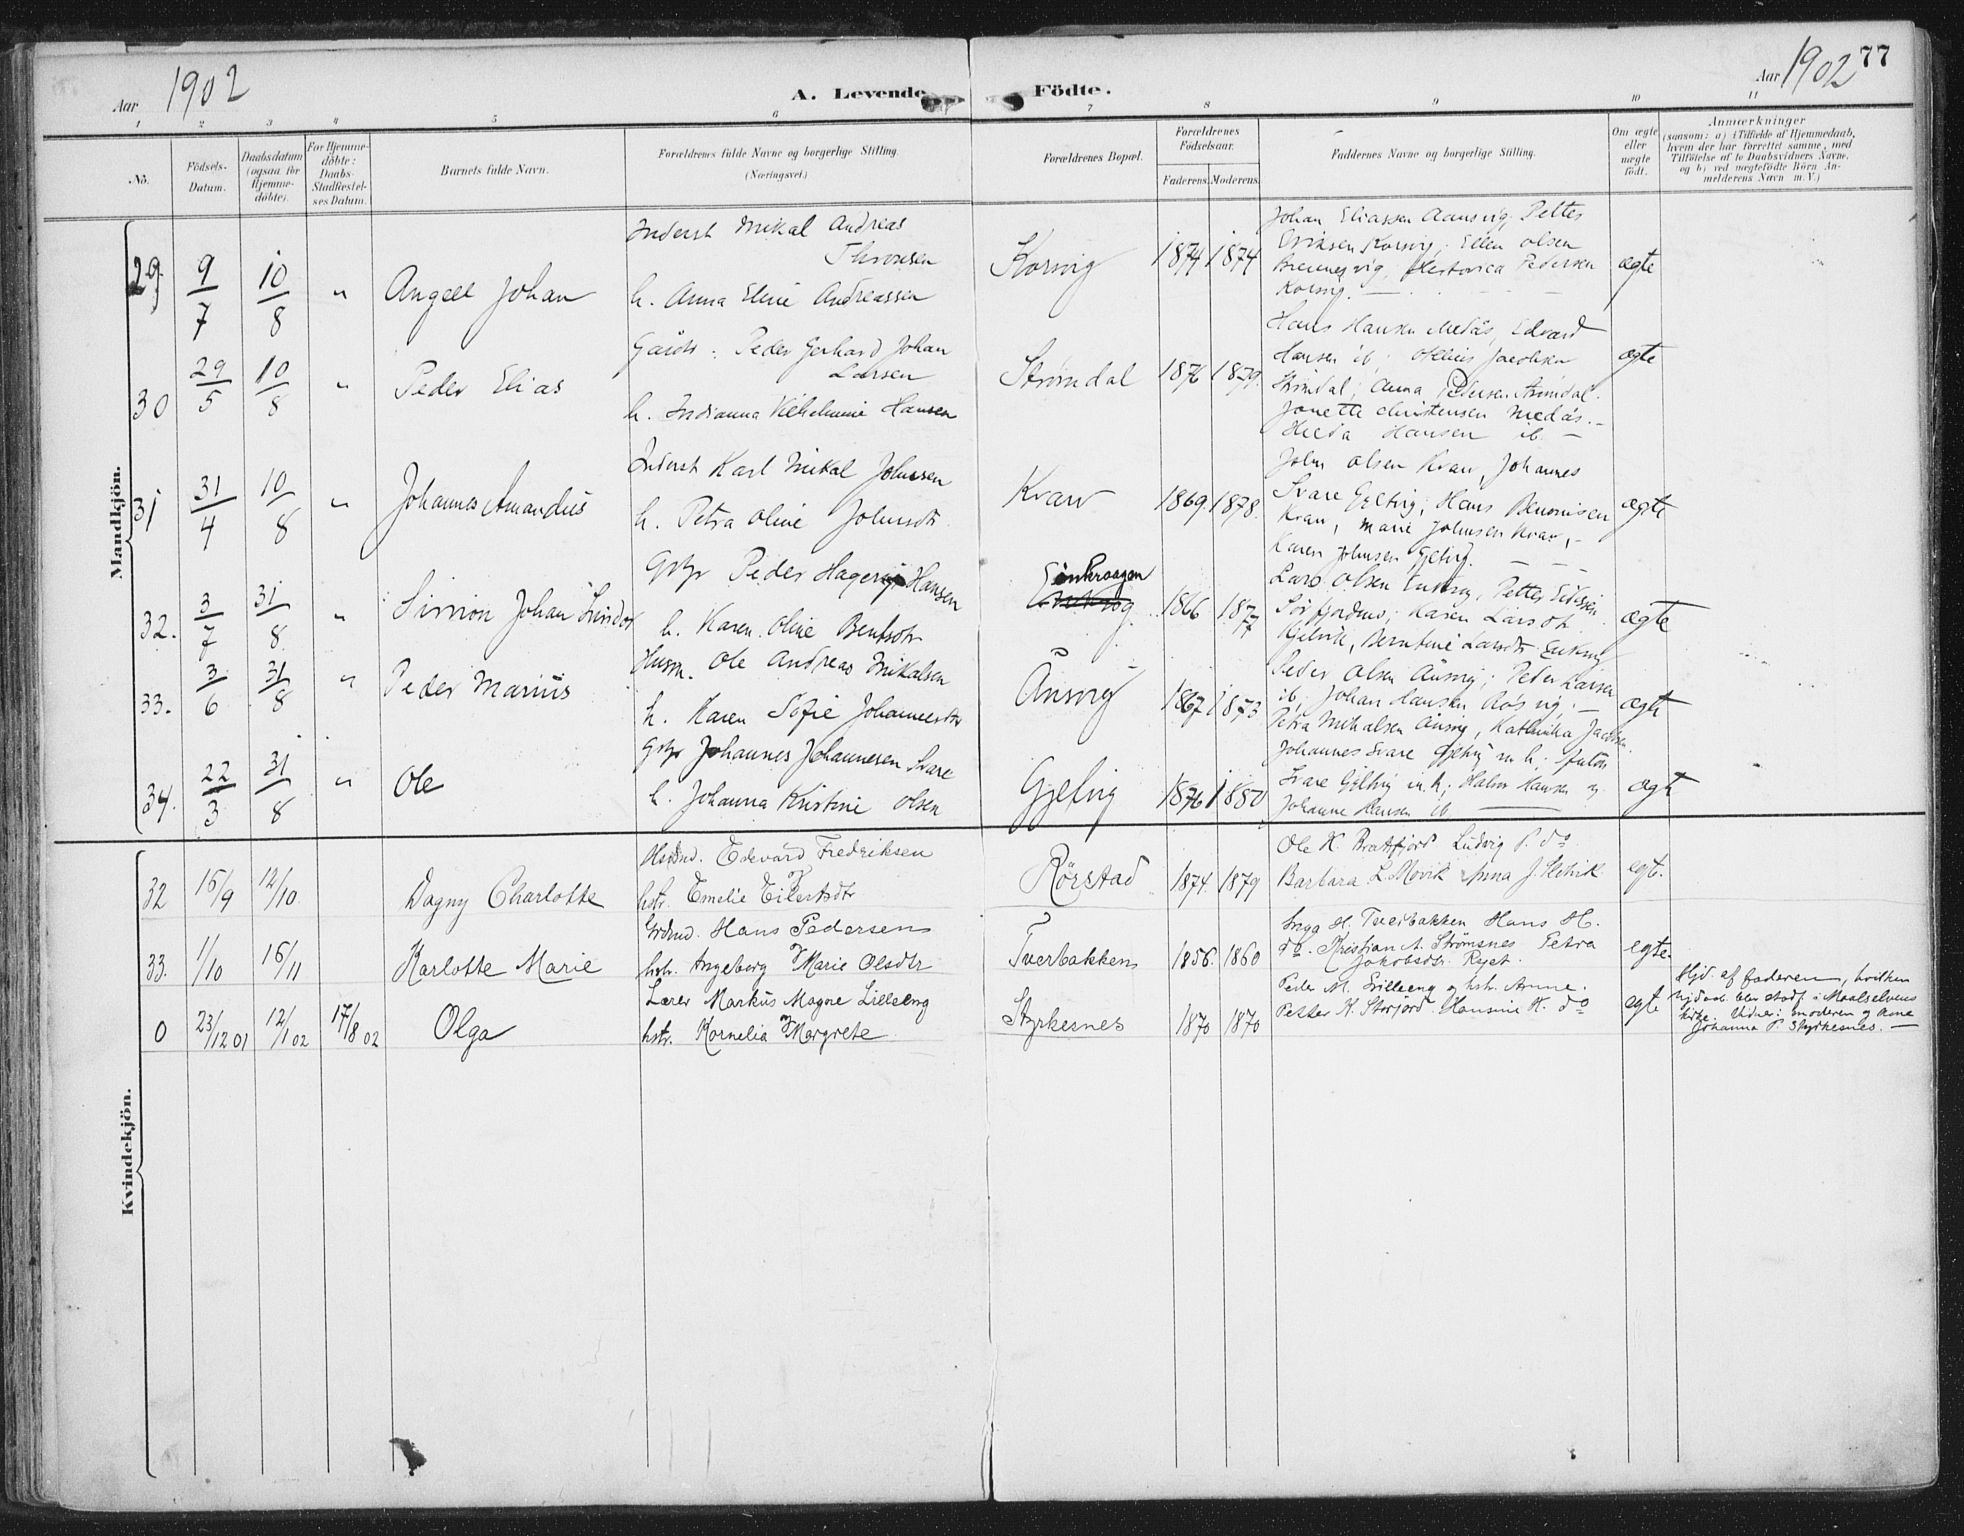 Aar 1902
A. Levende Födte.
Aar 1902 77
1 2 3 4 5 6 7 8 9 10 11
No.
Födsels-Datum.
Daabsdatum (ogsaa for Hjemme-döbte).
For Hjemme-döbte: Daabs-Stadfæstel-ses Datum.
Barnets fulde Navn.
Forældrenes fulde Navne og borgerlige Stilling.
(Næringsvei.)
Forældrenes Bopæl.
Forældrenes Födselsaar.
Faderens. Moderens.
Faddernes Navne og borgerlige Stilling.
Om ægte eller uægte födt.
Anmærkninger
(saasom: a) i Tilfælde af Hjemmedaab,
hvem der har forrettet samme, med
Tilföielse af to Daabsvidners Navne,
og b) ved uægtefödte Börn An-
melderens Navn m. V.)
Mandkjön.
29 9/7 10/8 " Angell Johan
Inderst Mikal Andreas
Thronsen
h. Anna Eline Andreassen
Korsvig 1874 1874
Johan Eliassen Aansvig. Petter
Eriksen Korsvig; Ellen Olsen
Brennesvig, Pedersen
Korsvig.
ægte
30 29/5 10/8 " Peder Elias
Gaardr. Peder Gerhard Johan
Larsen
h. Indianna Vilhelmine Hansen
Strømdal 1876 1879.
Hans Hansen Medås, Edvard
Hansen ib; Jacobsen
Strømdal; Anna Pedersen Strømdal.
Jonette Christensen Medås.
Hilda Hansen ib.
ægte
31 31/4 10/8 " Johannes Amandus
Inderst Karl Mikal Johnsen
h. Petra Oline Johnsdr.
Kvarv 1869. 1878.
John Olsen Kvarv, Johannes
Svare Gjelvig; Hans Benonisen
Kvarv, Marie Johnsen Kvarv,
Karen Johnsen Gjelvig.
ægte
32. 3/7 31/8. " Simon Johan Lindor
Gbr Peder Hagerup Hansen
h. Karen Oline Bentsdtr
Enkroagen 1866. 1877
Lars Olsen Enkrog, Petter
Sörfjordmo; Karen Larsdt
Gjelvik, Berntine Larsdt Enkrog
ægte
33. 3/6 31/8 " Peder Marius
Husm. Ole Andreas Mikalsen
h. Karen Sofie Johannesdtr
Ånsvig 1867 1873
Peder Olsen Ånsvig; Peder Larsen
ib; Johan Hansen Røsvig.
Petra Mikalsen Ånsvig, Kathrika Jacobsen.
ægte
34. 22/3 31/8 " Ole
Gbr Johannes Johannesen Svare
h. Johanna Kristine Olsen
Gjelvig 1876 1880
Johannes Svare Gjelvig m h; Anton
Svare Gjelvig m.h; Hansen og
Johanne Hansen ib.
ægte
Kvindekjön.
32 15/9 12/10. Dagny Charlotte
Edevard Fredriksen
hstr. Emelie Eilertsdtr
Rörstad 1874. 1879
Ole K. Bratfjord Ludvig P. do
Barbara L. Movik Anna J. Helvik
egt.
33. 1/10 16/11 Karlotte Marie
Grdmd. Hans Pedersen
hstr. Ingeborg Marie Olsdtr
Tverbakken 1856. 1860
Inga H. Tverbakken Hans H.
do. Kristian A. Strömsnes Petra
Jakobsdtr
egte.
0 23/12 01 12/1 02 17/8 02 Olga
Lærer Markus Magne Lilleeng
hstr. Kornelia Margrete
Styrkesnes 1870 1870
Peder M. Lilleeng og hstr. Anne.
Petter K. Storjord Hansine K. do
egte
Hjd. af faderen, hvilken
hjdaab blev stadf. i Maalselvens
kirke. Vidner: moderen og
Johanna P Styrkesnes.